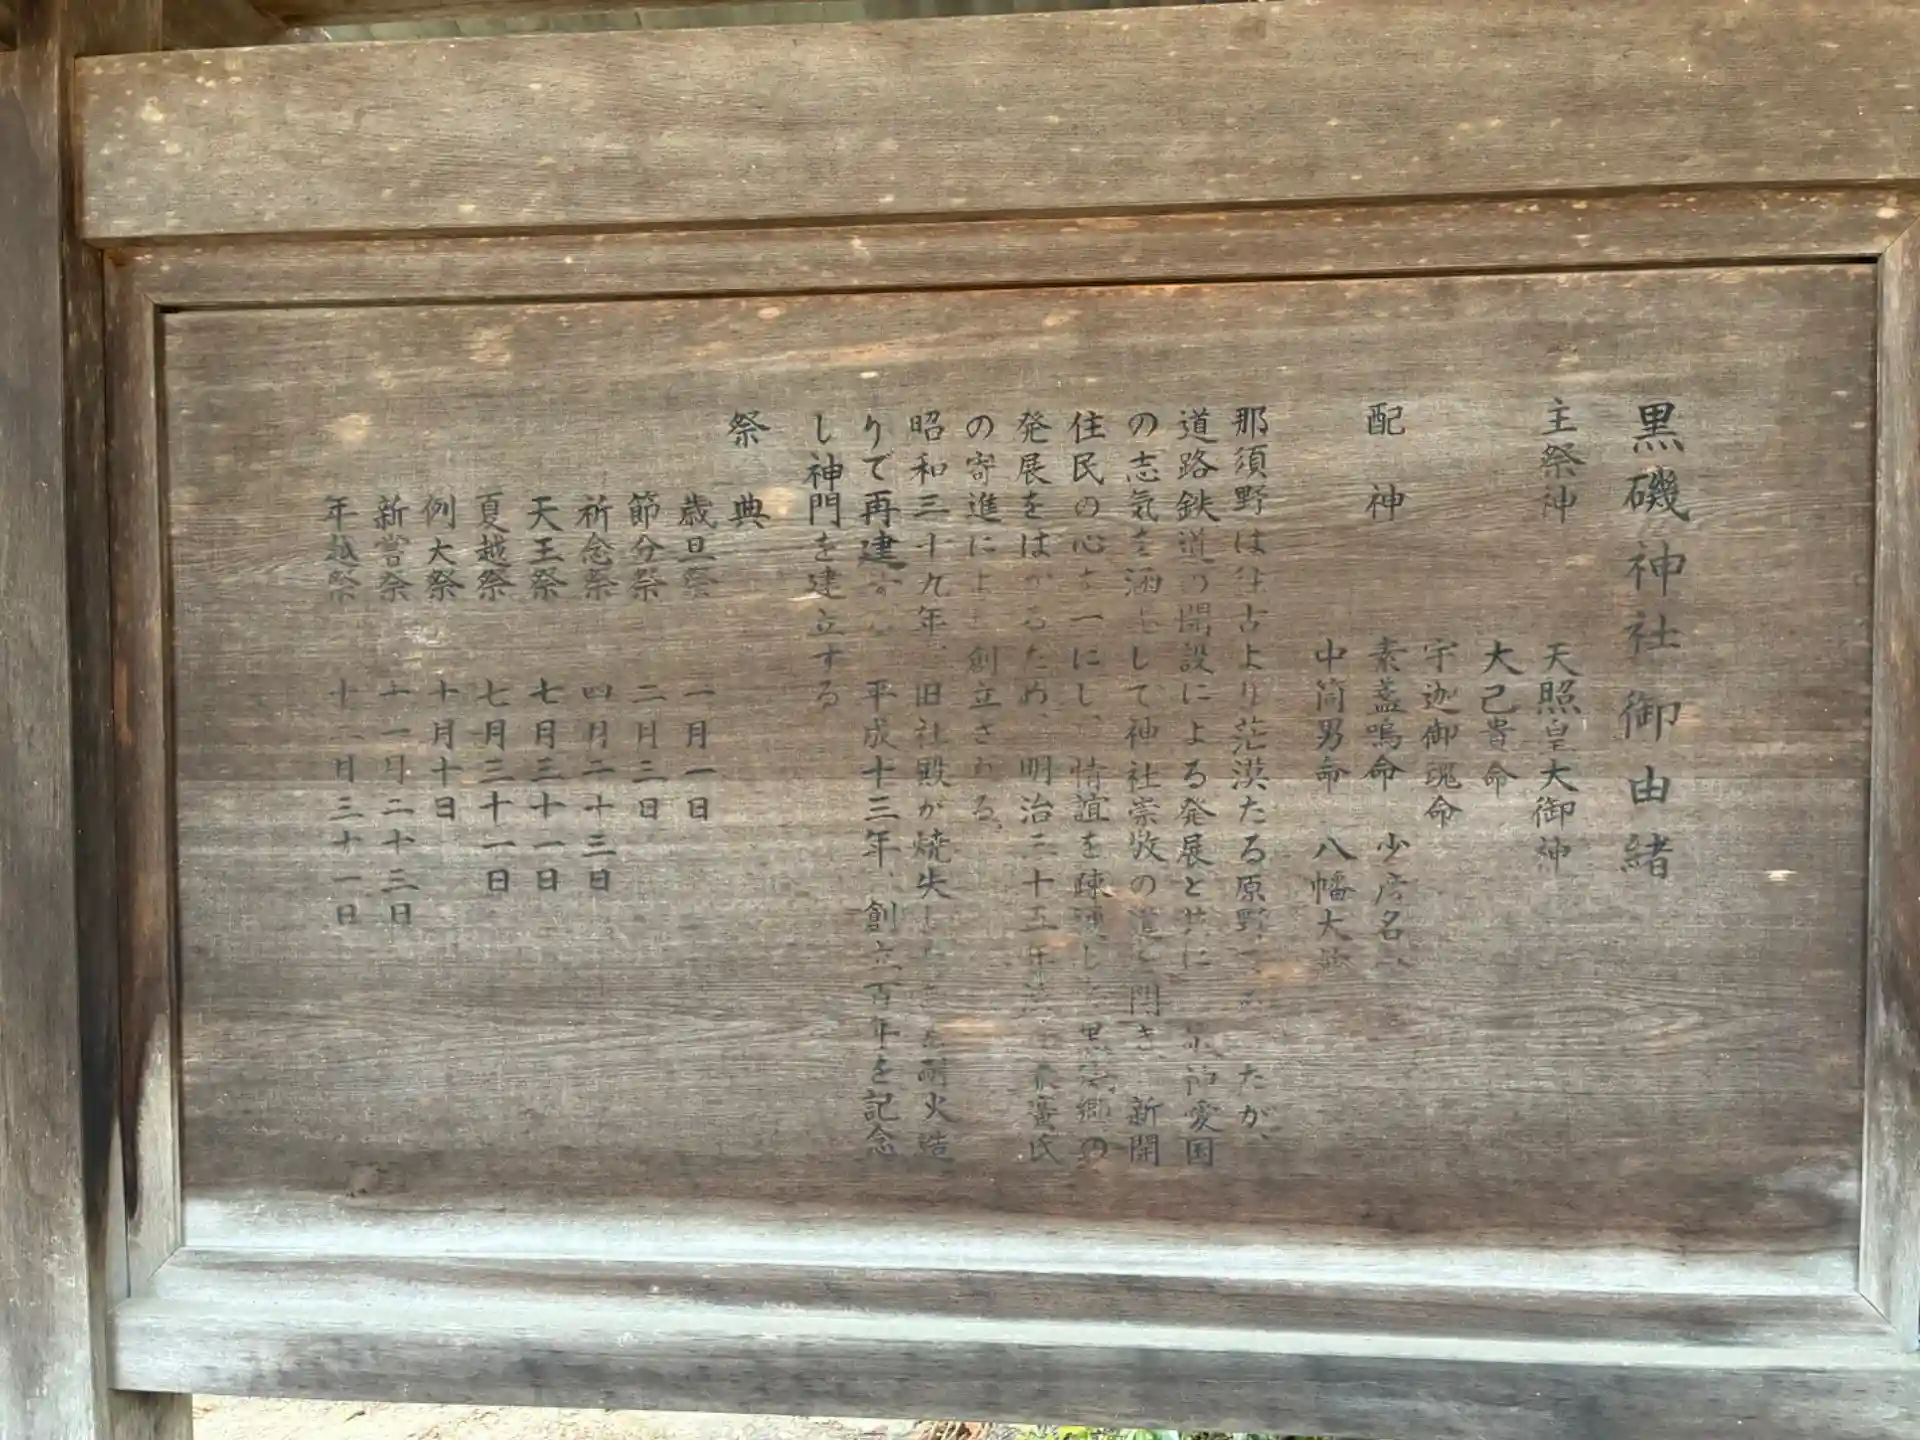 黒磯神社御由緒
主祭神 天照皇大御神
大己貴命
宇迦御魂命
配神 素盞嗚命 少彦名
中筒男命 八幡大神
那須野は往古より茫漠たる原野で たが、
道路鉄道の開設による発展と共に 愛国
の志気を涵 して神社崇敬の道を開き、新開
住民の心を一にし、情誼を疎 し 黒磯郷の
発展をはかるため、明治三十五年 氏
の寄進により創立される。
昭和三十九年、旧社殿が焼失した 耐火造
りで再建 平成十三年、創立百年を記念
し神門を建立する
祭典
歳旦祭 一月一日
節分祭 二月三日
祈念祭 四月二十三日
天王祭 七月三十一日
夏越祭 七月三十一日
例大祭 十月十日
新嘗祭 十一月二十三日
年越祭 十二月三十一日